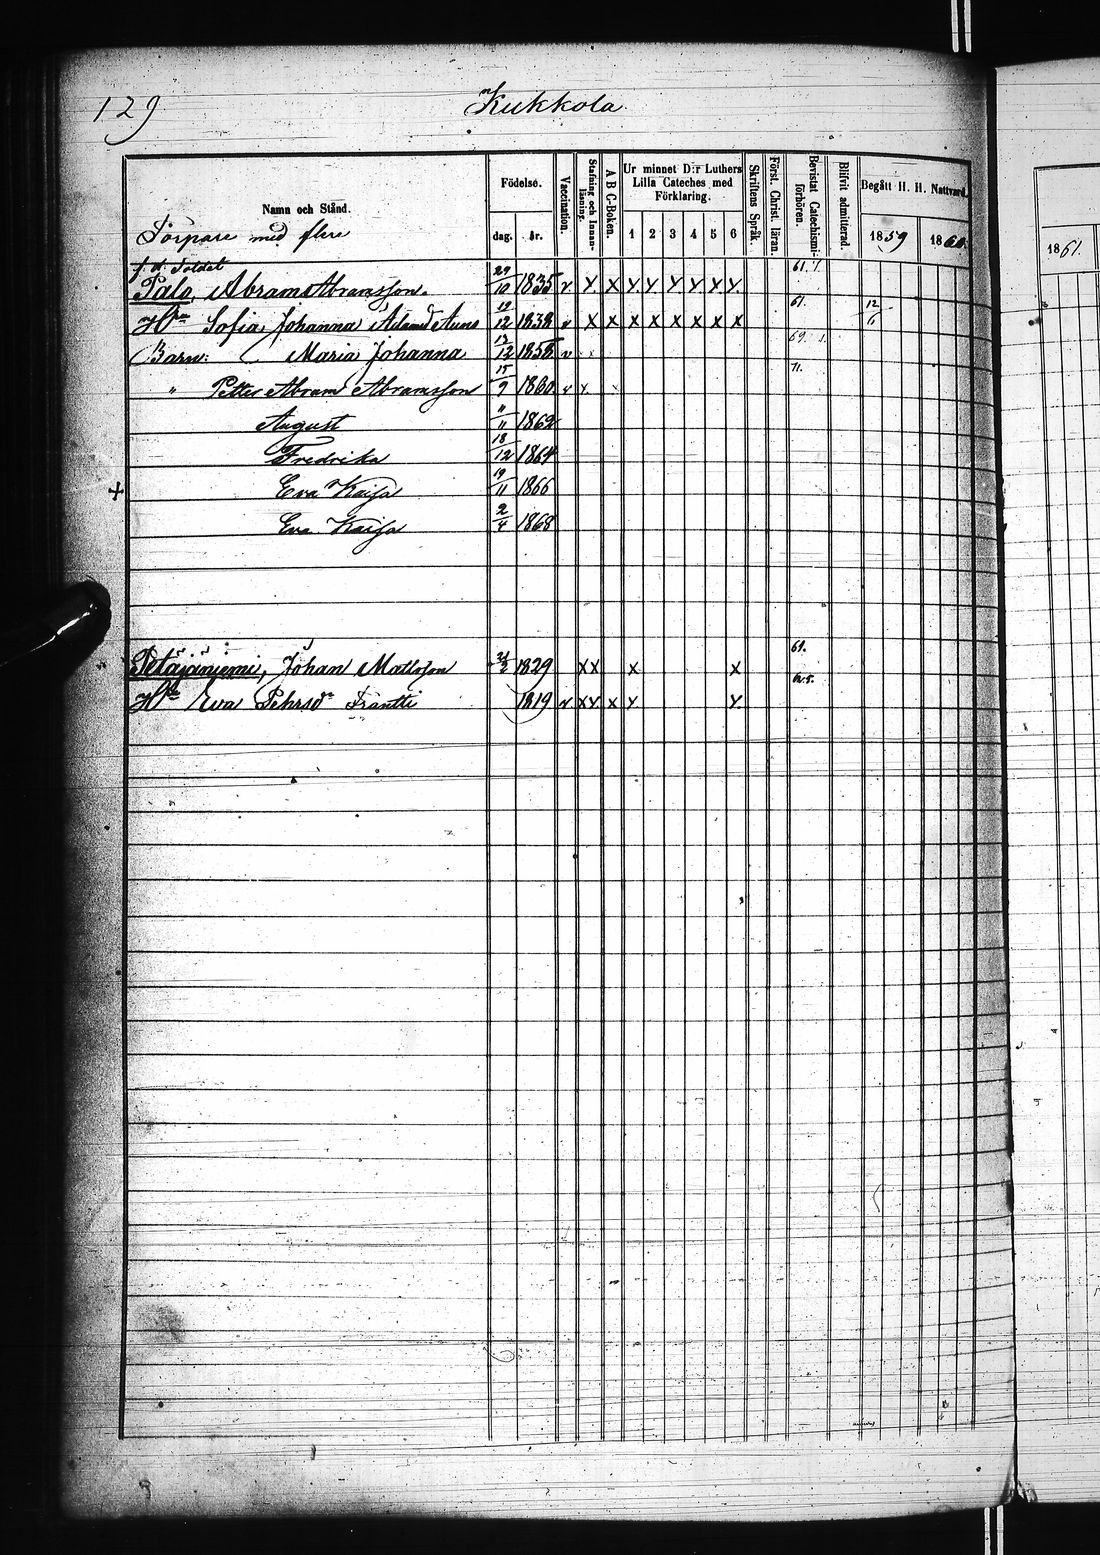 129
Kukkola
Namn och Stånd.
Födelse.
dag. år.
Vaccination.
Stafning och Innanläsning.
A B C-Boken.
Ur minnet D:r Luthers Lilla Cateches med Förklaring.
1 2 3 4 5 6
Skriftens Språk.
Först. Christ. läran.
Bevistat Catechismiförhören.
Blifvit admitterad.
Begått H. H. Nattvard.
1859 1860. 1861.
Torpare med flere
f. d. Soldat
Palo, Abram Abramsson. 29/10 1835 v x x x x x x x x 61.
H:u Sofia Johanna Adamsd 19/12 1838 v x x x x x x x x 61. 12/6
Barn: Maria Johanna 12/12 1858 v x 69.
" Petter Abram Abramsson 15/9 1860 v x 71.
August 11/11 1862
Fredrika 18/12 1864
+ Eva Kaisa 19/11 1866
Eva Kaisa 2/4 1868
Petäjäniemi, Johan Mattsson 1829 x x x x 61.
H:u Eva Pehrsdr Frantti 1819 v x x x x x